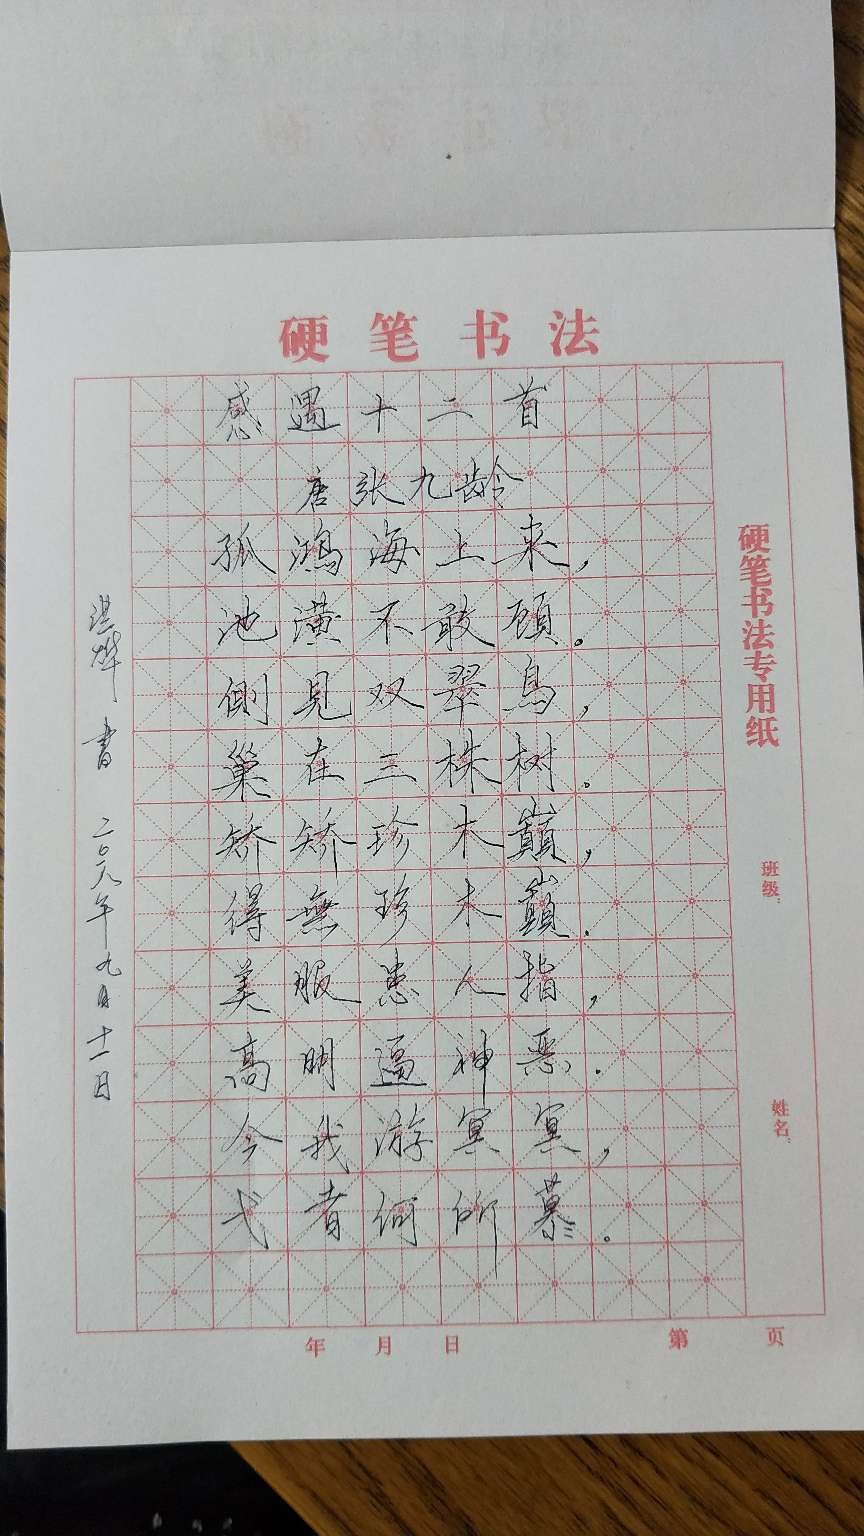 硬笔书法
感遇十二首
唐 张九龄
孤鸿海上来，
池潢不敢顾。
侧见双翠鸟，
巢在三株树.
矫矫珍木巅，
得無珍木巅.
美服患人指，
高明逼神恶.
今我游冥冥，
弋者何所慕。
书 二〇一九年九月十一日
硬笔书法专用纸
班级:
姓名:
年 月 日 第 页